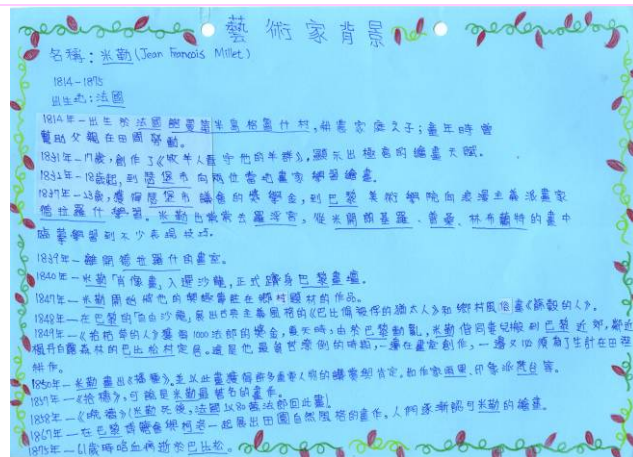 藝術家背景
名稱：米勒(Jean Francois Millet)
1814-1875
出生地：法國
1814年－出生於法國 半島格 什村，供書家庭之子；童年時曾
幫助父親在田間勞動。
1831年－17歲，創作了《牧羊人看守他的羊群》，顯示出極高的繪畫天賦。
1832年－18歲起，到 堡市向兩位當地畫家學習繪畫。
1837年－23歲，獲得 堡市議會的獎學金，到巴黎美術學院向浪漫主義派畫家
德拉羅什學習。米勒也常常去羅浮宮，從米開朗基羅、普桑、林布蘭特的畫中
臨摹學習到不少表現技巧。
1839年－離開德拉羅什的畫室。
1840年－米勒「肖像畫」入選沙龍，正式躋身巴黎畫壇。
1847年－米勒開始將他的 專注在鄉村題材的作品。
1848年－在巴黎的「自由沙龍」展出古典主義風格的《巴比倫被俘的猶太人》和鄉村風俗畫《篩穀的人》。
1849年－《拾枯草的人》獲得1000法郎的獎金，夏天時，由於巴黎動亂，米勒偕同妻兒搬到巴黎近郊，鄰近
楓丹白露森林的巴比松村定居。這是他最貧苦潦倒的時期，一邊在畫室創作，一邊又必須為了生計在田裡
耕作。
1850年－米勒畫出《播種》，並以此畫獲得許多重要人物的購藏與肯定，如作家雨果、印象派莫內等。
1857年－《拾穗》，可能是米勒最著名的畫作。
1858年－《晚禱》(米勒死後，法國以80萬法郎回此畫)。
1867年－在巴黎博覽會與柯洛一起展出田園自然風格的畫作，人們逐漸認可米勒的繪畫。
1875年－61歲時咯血病逝於巴比松。